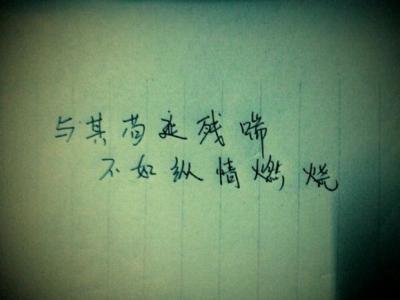 与其苟延残喘
不如纵情燃烧